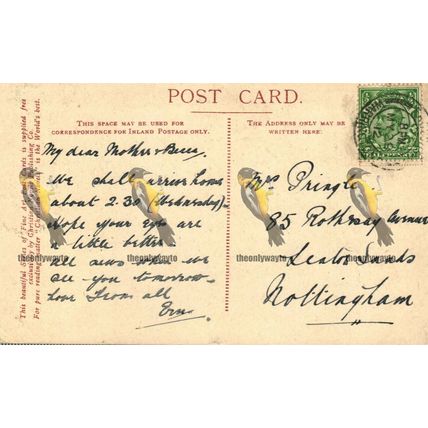 POST CARD.
THIS SPACE MAY BE USED FOR
CORRESPONDENCE FOR INLAND POSTAGE ONLY.
My dear Mother &
We shall arrive home
about 2.30 (Wednesday)
Hope your eyes are
a little better
all news when we
see you tomorrow
love from all
Ern
THE ADDRESS ONLY MAY BE
WRITTEN HERE.
Mrs Pringle
85 Rothesay Avenue
Lenton Sands
Nottingham
This beautiful Series of Fine Art Post Cards is supplied free
For pure reading is the World's best.
theonlywayto
theonlywayto
theonlywayto
theonlywayto